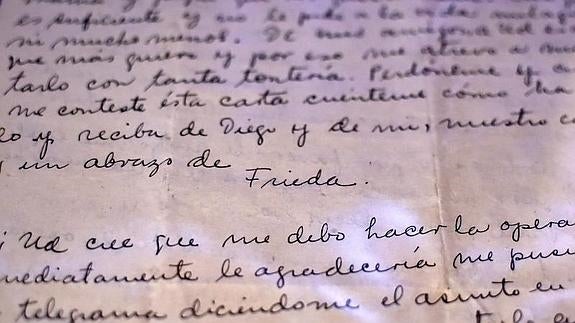 es suficiente y no le pido a la vida
ni mucho menos. De mis amigos Ud es
que más quiero y por eso me atrevo a
tarlo con tanta tontería. Perdóneme y
me conteste ésta carta cuénteme cómo ha
lo y reciba de Diego y de mi, nuestro
un abrazo de
Frieda.
Ud cree que me debo hacer la opera
mediatamente le agradecería me pusi
telegrama diciéndome el asunto en